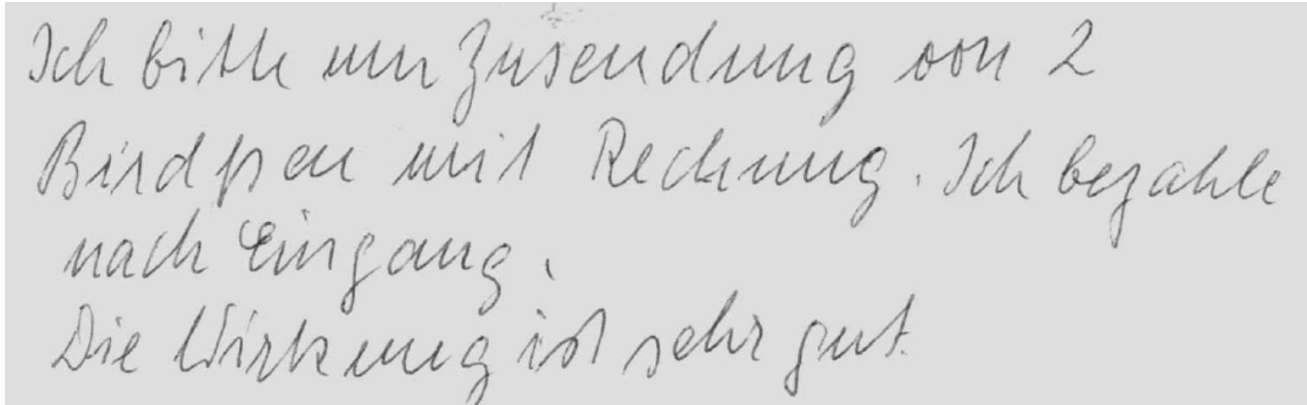 Ich bitte um Zusendung von 2
Birdfree mit Rechnung. Ich bezahle
nach Eingang.
Die Wirkung ist sehr gut.